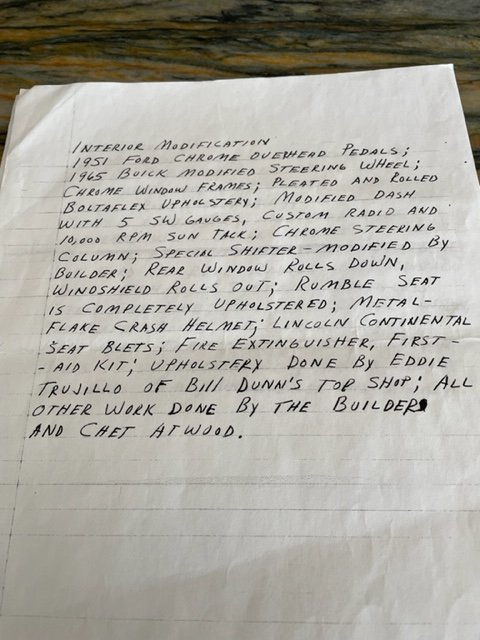 INTERIOR MODIFICATION
1951 FORD CHROME OVERHEAD PEDALS;
1965 BUICK MODIFIED STEERING WHEEL;
CHROME WINDOW FRAMES; PLEATED AND ROLLED
BOLTAFLEX UPHOLSTERY; MODIFIED DASH
WITH 5 SW GAUGES, CUSTOM RADIO AND
10,000 RPM SUN TALK; CHROME STEERING
COLUMN; SPECIAL SHIFTER - MODIFIED BY
BUILDER; REAR WINDOW ROLLS DOWN,
WINDSHIELD ROLLS OUT; RUMBLE SEAT
IS COMPLETELY UPHOLSTERED; METAL-
FLAKE CRASH HELMET; LINCOLN CONTINENTAL
SEAT BLETS; FIRE EXTINGUISHER, FIRST-
-AID KIT; UPHOLSTERY DONE BY EDDIE
TRUJILLO OF BILL DUNN'S TOP SHOP; ALL
OTHER WORK DONE BY THE BUILDER
AND CHET ATWOOD.